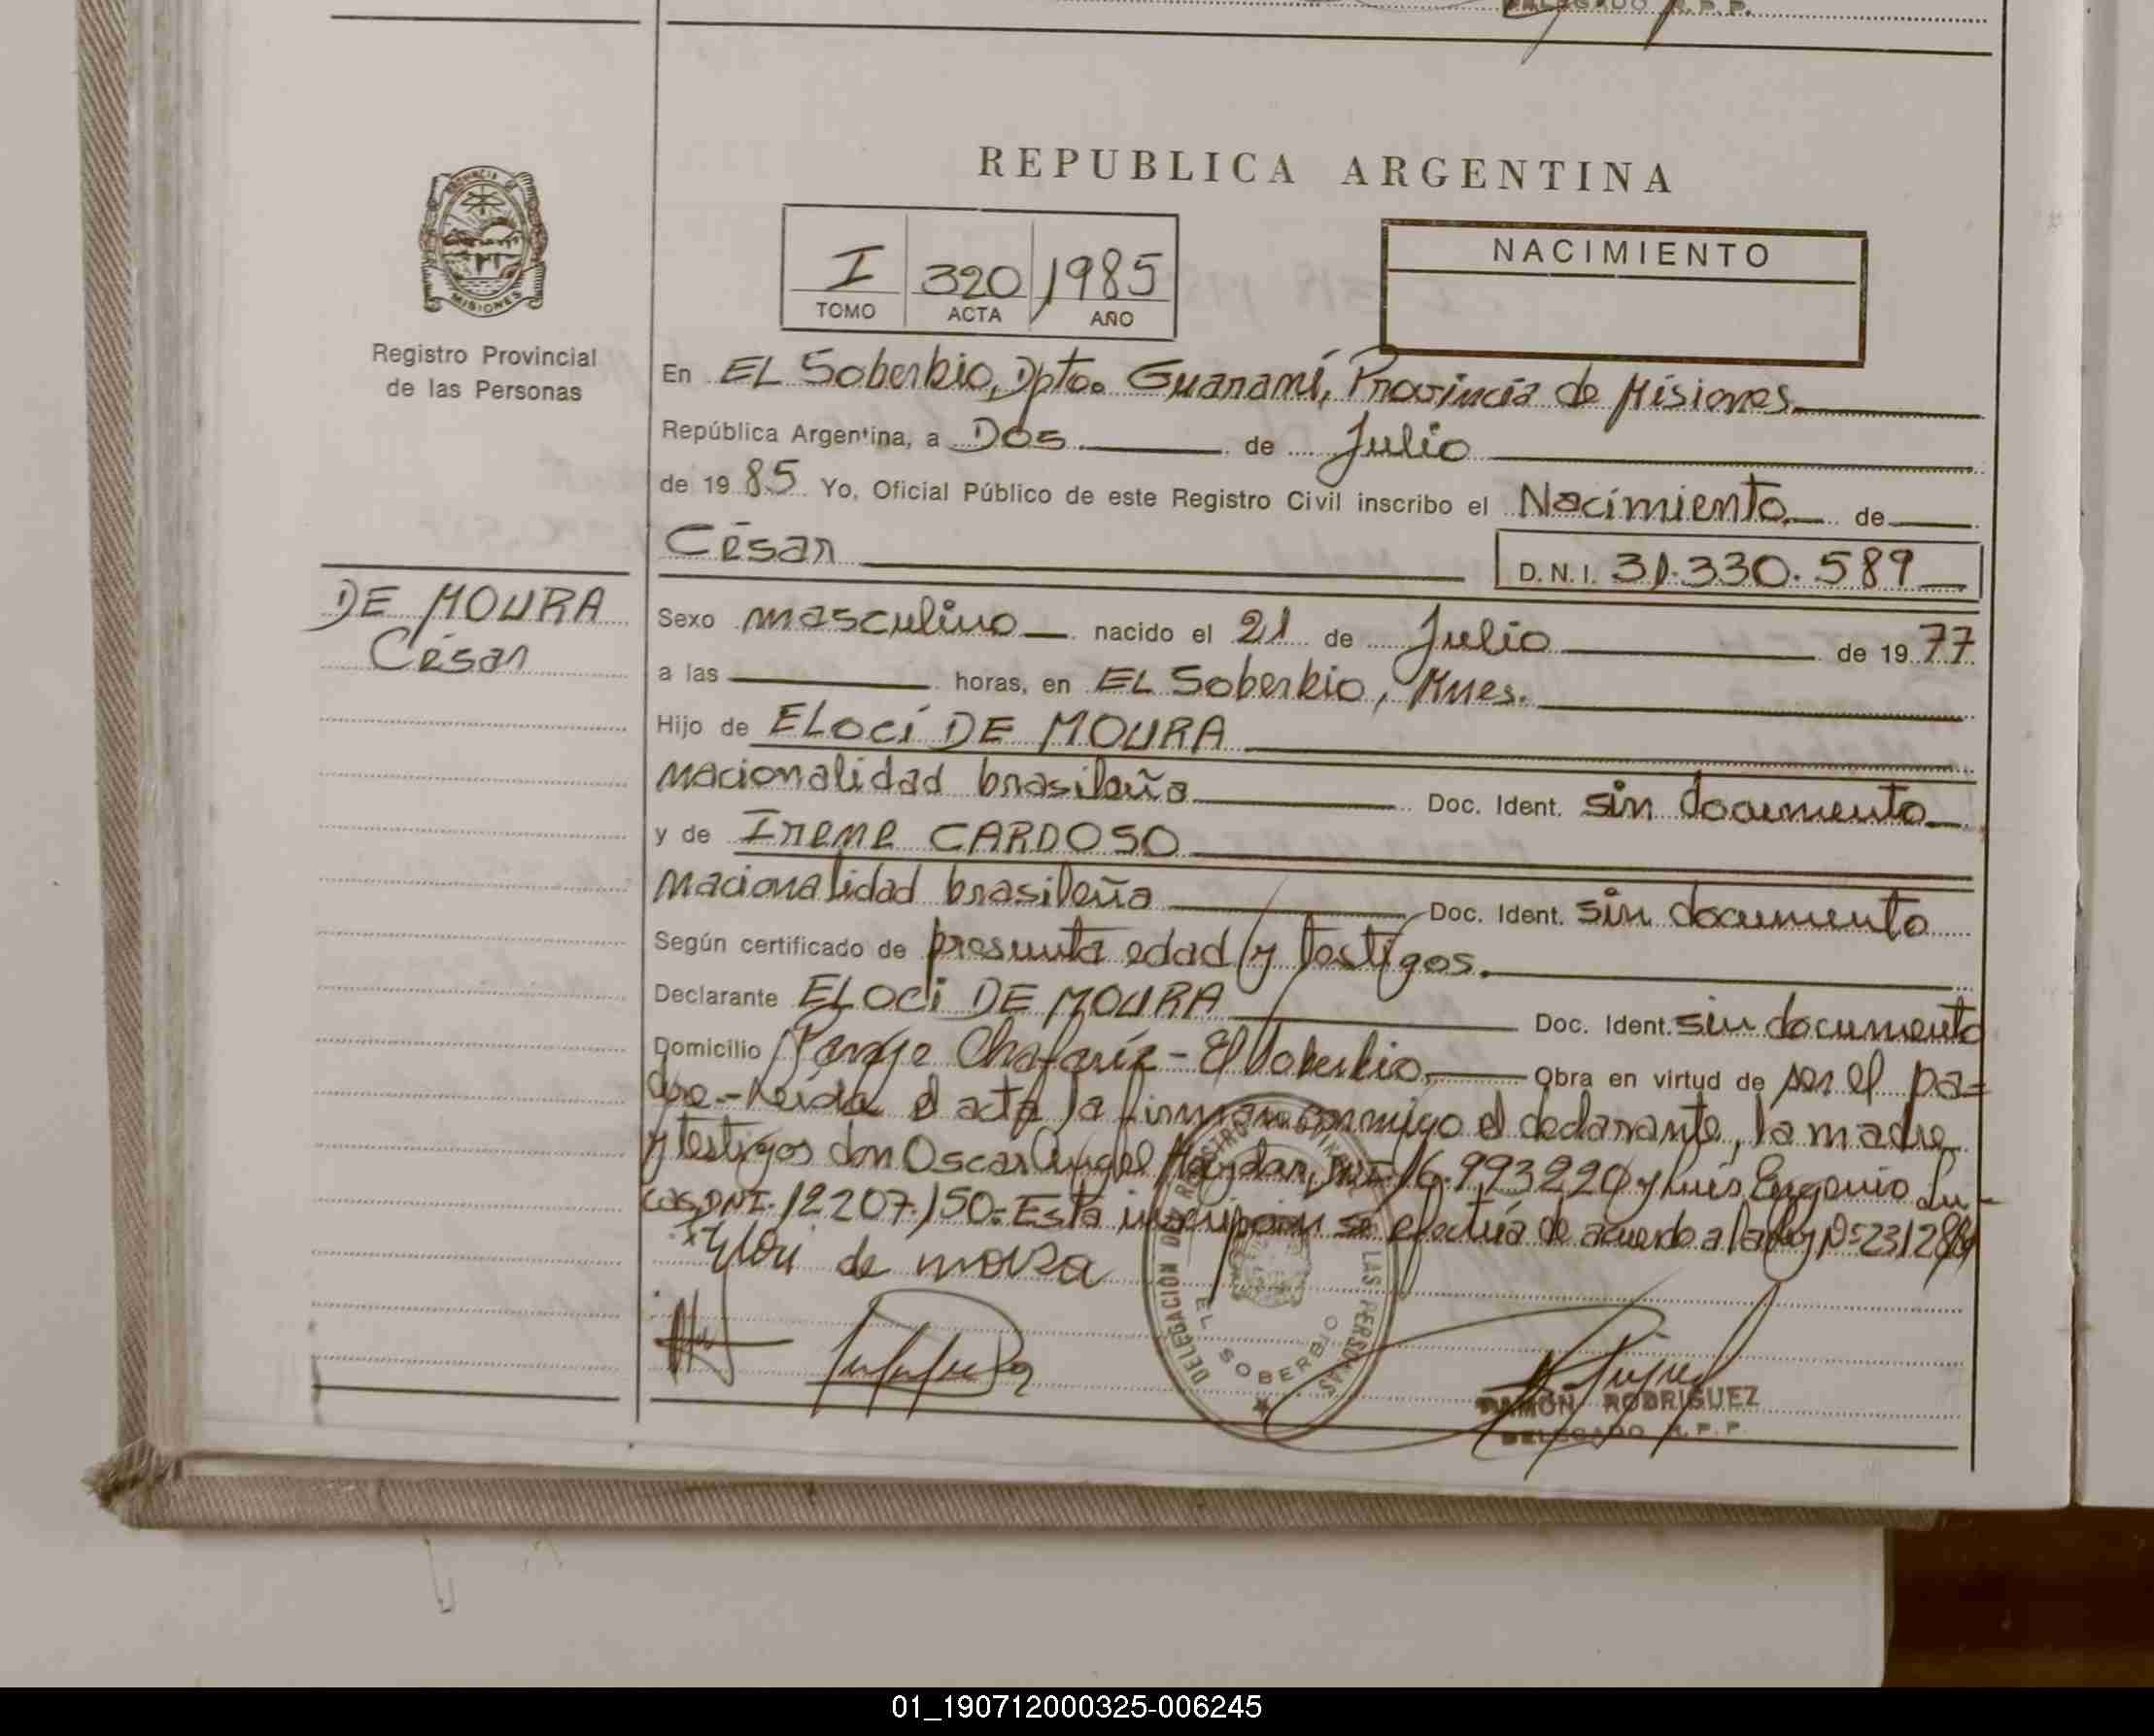 DELEGADO R.P.P.
REPUBLICA ARGENTINA
PROVINCIA DE
MISIONES
Registro Provincial
de las Personas
I 320 1985
TOMO ACTA AÑO
NACIMIENTO
En EL Soberbio, Dpto. Guaraní, Provincia de Misiones
República Argentina, a Dos de Julio
de 1985 Yo, Oficial Público de este Registro Civil inscribo el Nacimiento de
César
D.N.I. 31.330.589
DE MOURA
César
Sexo masculino nacido el 21 de Julio de 1977
a las horas, en EL Soberbio, Mnes.
Hijo de ELOCí DE MOURA
nacionalidad brasileña Doc. Ident. sin documento
y de Irene CARDOSO
nacionalidad brasileña Doc. Ident. sin documento
Según certificado de presunta edad y testigos.
Declarante ELOCi DE MOURA Doc. Ident. sin documento
Domicilio Paraje Chafariz - El Soberbio. Obra en virtud de ser el pa=
dre.- Leída el acta la firman conmigo el declarante, la madre
y testigos don Oscar Angel DNI 16.993220 y Luis Eugenio Lu-
cas, DNI. 12.207.150.- Esta inscripción se efectúa de acuerdo a la ley Nº
de moura
DELEGACION DEL REGISTRO PROVINCIAL DE LAS PERSONAS
EL SOBERBIO
RAMON RODRIGUEZ
DELEGADO R.P.P.
01_190712000325-006245